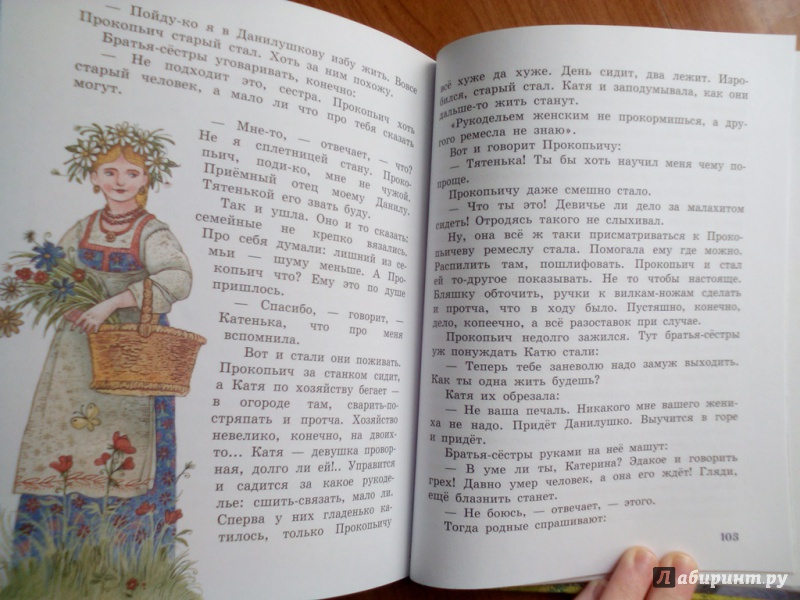 — Пойду-ко я в Данилушкову избу жить. Вовсе
Прокопьич старый стал. Хоть за ним похожу.
Братья-сёстры уговаривать, конечно:
— Не подходит это, сестра. Прокопьич хоть
старый человек, а мало ли что про тебя сказать
могут.
— Мне-то, — отвечает, — что?
Не я сплетницей стану. Проко-
пьич, поди-ко, мне не чужой.
Приёмный отец моему Данилу.
Тятенькой его звать буду.
Так и ушла. Оно и то сказать:
семейные не крепко вязались.
Про себя думали: лишний из се-
мьи — шуму меньше. А Про-
копьич что? Ему это по душе
пришлось.
— Спасибо, — говорит, —
Катенька, что про меня
вспомнила.
Вот и стали они поживать.
Прокопьич за станком сидит,
а Катя по хозяйству бегает —
в огороде там, сварить-по-
стряпать и протча. Хозяйство
невелико, конечно, на двоих-
то... Катя — девушка провор-
ная, долго ли ей!.. Управится
и садится за какое рукоде-
лье: сшить-связать, мало ли.
Сперва у них гладенько ка-
тилось, только Прокопьичу
всё хуже да хуже. День сидит, два лежит. Изро-
бился, старый стал. Катя и заподумывала, как они
дальше-то жить станут.
«Рукодельем женским не прокормишься, а дру-
гого ремесла не знаю».
Вот и говорит Прокопьичу:
— Тятенька! Ты бы хоть научил меня чему по-
проще.
Прокопьичу даже смешно стало.
— Что ты это! Девичье ли дело за малахитом
сидеть! Отродясь такого не слыхивал.
Ну, она всё ж таки присматриваться к Проко-
пьичеву ремеслу стала. Помогала ему где можно.
Распилить там, пошлифовать. Прокопьич и стал
ей то-другое показывать. Не то чтобы настояще.
Бляшку обточить, ручки к вилкам-ножам сделать
и протча, что в ходу было. Пустяшно, конечно,
дело, копеечно, а всё разоставок при случае.
Прокопьич недолго зажился. Тут братья-сёстры
уж понуждать Катю стали:
— Теперь тебе заневолю надо замуж выходить.
Как ты одна жить будешь?
Катя их обрезала:
— Не ваша печаль. Никакого мне вашего жени-
ха не надо. Придёт Данилушко. Выучится в горе
и придёт.
Братья-сёстры руками на неё машут:
— В уме ли ты, Катерина? Эдакое и говорить
грех! Давно умер человек, а она его ждёт! Гляди,
ещё блазнить станет.
— Не боюсь, — отвечает, — этого.
Тогда родные спрашивают:
103
Лабиринт.ру